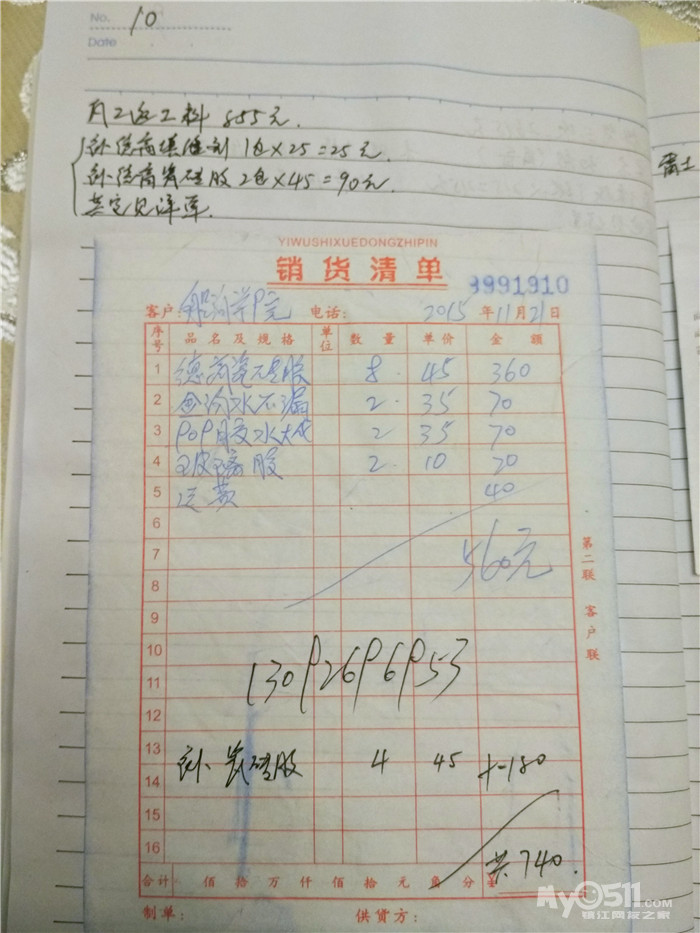 No. 10
Date
瓦工返工料 855元.
补德高填缝剂 1包×25=25元.
补德高瓷砖胶 2包×45=90元.
其它见详单.
YIWUSHIXUEDONGZHIPIN
销货清单 9991910
客户: 船舶学院 电话: 2015年11月21日
序号 品名及规格 单位 数量 单价 金额
1 德高瓷砖胶 8. 45 360
2 水不漏 2. 35 70
3 胶水大 2 35 70
4 玻璃胶 2. 10 20
5 运费 40
6
7 560元
8
9
10
11
12
13 补瓷砖胶 4 45 +180
14
15
16 共740.
合计 佰拾万仟佰拾元角分
制单: 供货方:
第二联 客户联
雷士
My0511.com
镇江网友之家